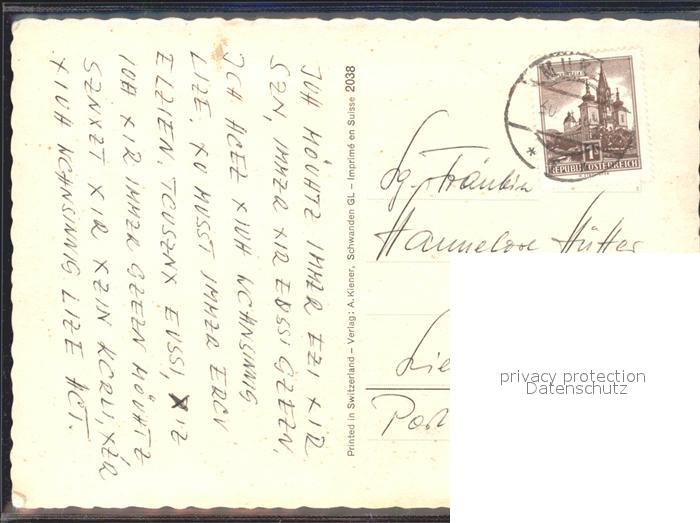 JUH MÖUHTZ IMMZR EZI XIR
SZN, IMMZR XIR EUSSI GZEZN,
JUH HCEZ XIUH WCHNSINNIG
LIZE, XU MUSST IMMZR ERCV
ELZIEN. TCUSZNX EUSSI, XIZ
IUH XIR IMMZR GZEZN MÖUHTZ
SZNXZT XIR XZIN KCRLI, XZR
XIUH WCHNSINNIG LIZE HCT.
Printed in Switzerland – Verlag: A. Kiener, Schwanden GL – Imprimé en Suisse 2038
REPUBLIK ÖSTERREICH
Sg. Fräulein
Hannelore Hütter
Lie
Post
privacy protection
Datenschutz